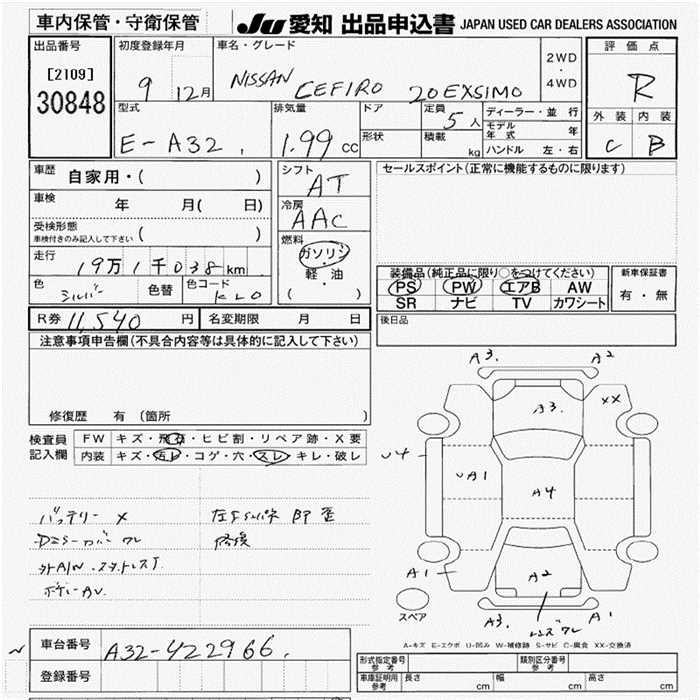 車内保管・守衛保管
JU 愛知 出品申込書 JAPAN USED CAR DEALERS ASSOCIATION
出品番号
[2109]
30848
初度登録年月
9 12月
車名・グレード
NISSAN CEFIRO 20EXSIMO
2WD
・
4WD
評価点
R
外装 内装
C B
型式
E-A32
排気量
1.99 cc
ドア
形状
定員
5人
積載
kg
ディーラー・並行
モデル年式 年
ハンドル 左・右
車歴
自家用・( )
車検
年 月( 日)
受検形態
車検付きのみ記入して下さい ( )
走行
19万1千038km
色
シルバー 色替
色コード
KL0
シフト
AT
冷房
AAC
燃料
ガソリン
・
軽・油
( )
セールスポイント(正常に機能するものに限ります)
装備品(純正品に限り○をつけてください)
PS PW エアB AW
SR ナビ TV カワシート
新車保証書
有・無
後日品
R券 11,540 円
名変期限 月 日
注意事項申告欄(不具合内容等は具体的に記入して下さい)
修復歴 有(箇所 )
検査員
記入欄
FW キズ・飛石・ヒビ割・リペア跡・X要
内装 キズ・汚レ・コゲ・穴・スレ・キレ・破レ
バッテリー ×
外A/W
A3 A2
A3 XX
U4
UA1
A4
A1
A2
A3 A1
スペア
A-キズ E-エクボ U-凹み W-補修跡 S-サビ C-腐食 XX-交換済
車台番号
A32-422966
登録番号
形式指定番号
参考
類別区分番号
参考
車庫証明用
参考
長さ cm
幅 cm
高さ cm